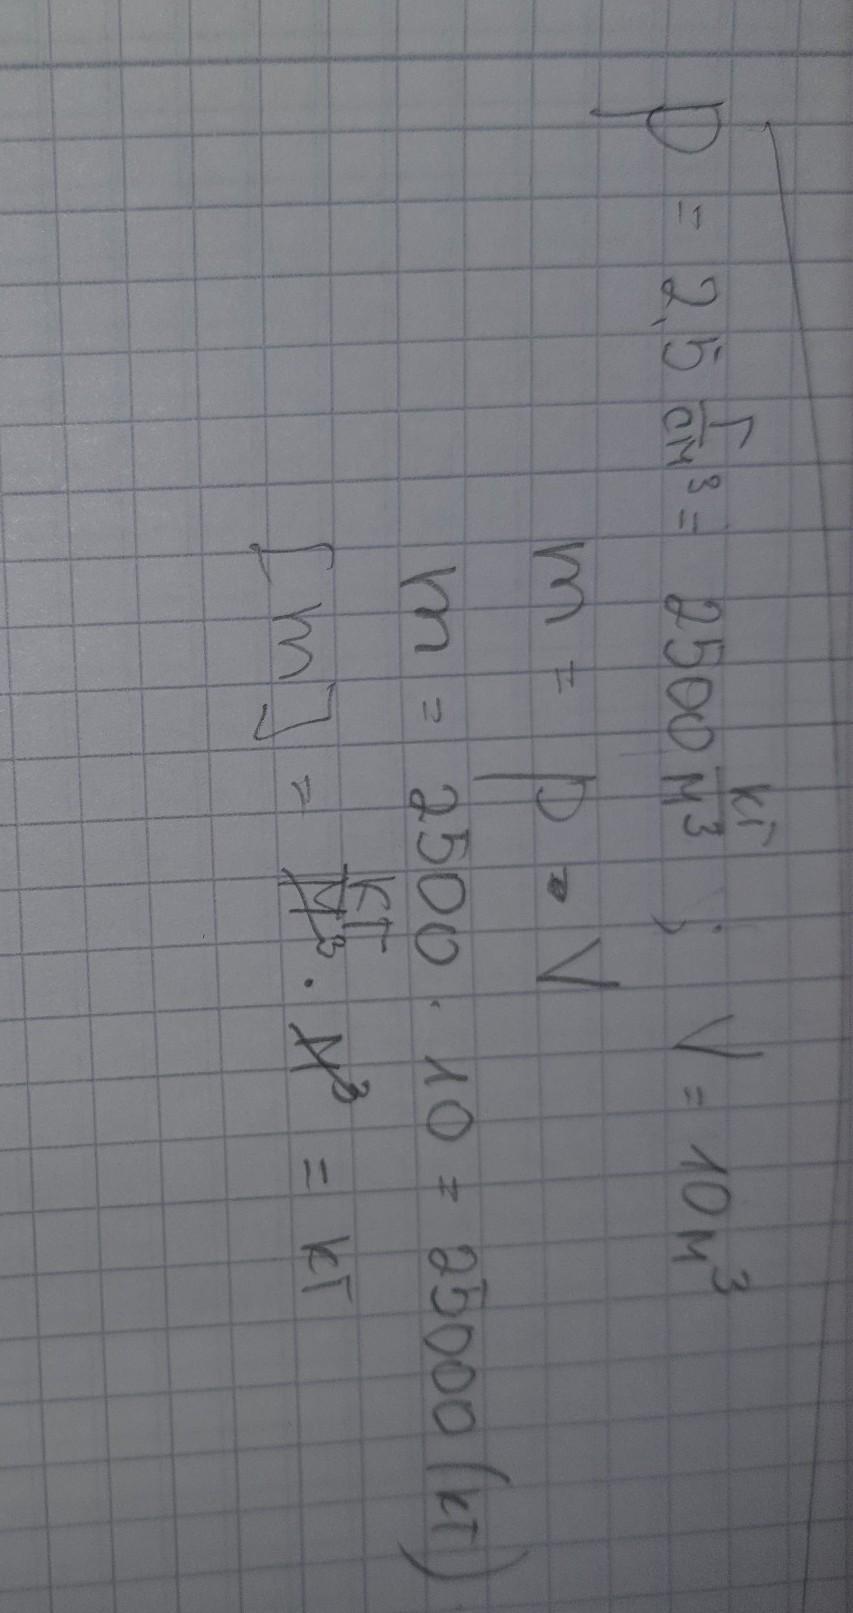 ρ = 2,5 г/см³ = 2500 кг/м³ ; V = 10 м³
m = ρ · V
m = 2500 · 10 = 25000 (кг)
[m] = кг/м³ · м³ = кг